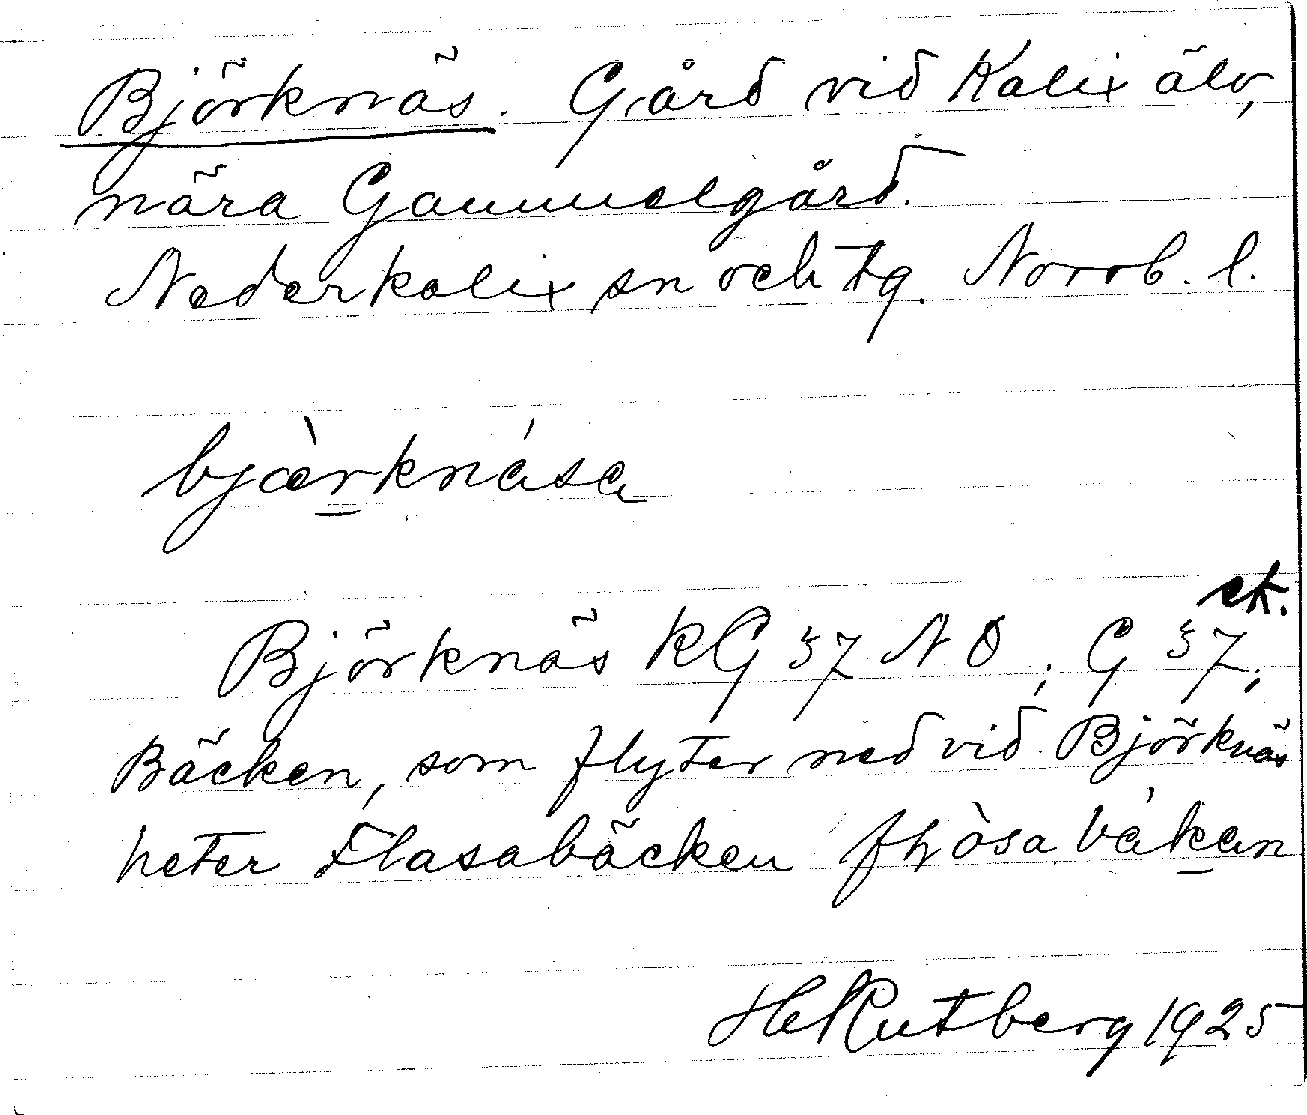 Björknäs. Gård vid Kalix älv,
nära Gammelgård.
Nederkalix sn och tg. Norrb. l.
bjæ̀rknása
ek.
Björknäs KG 37 NO; G 37;
Bäcken, som flyter ned vid Björknäs
heter Flasabäcken flòsabákan
HeRutberg 1925